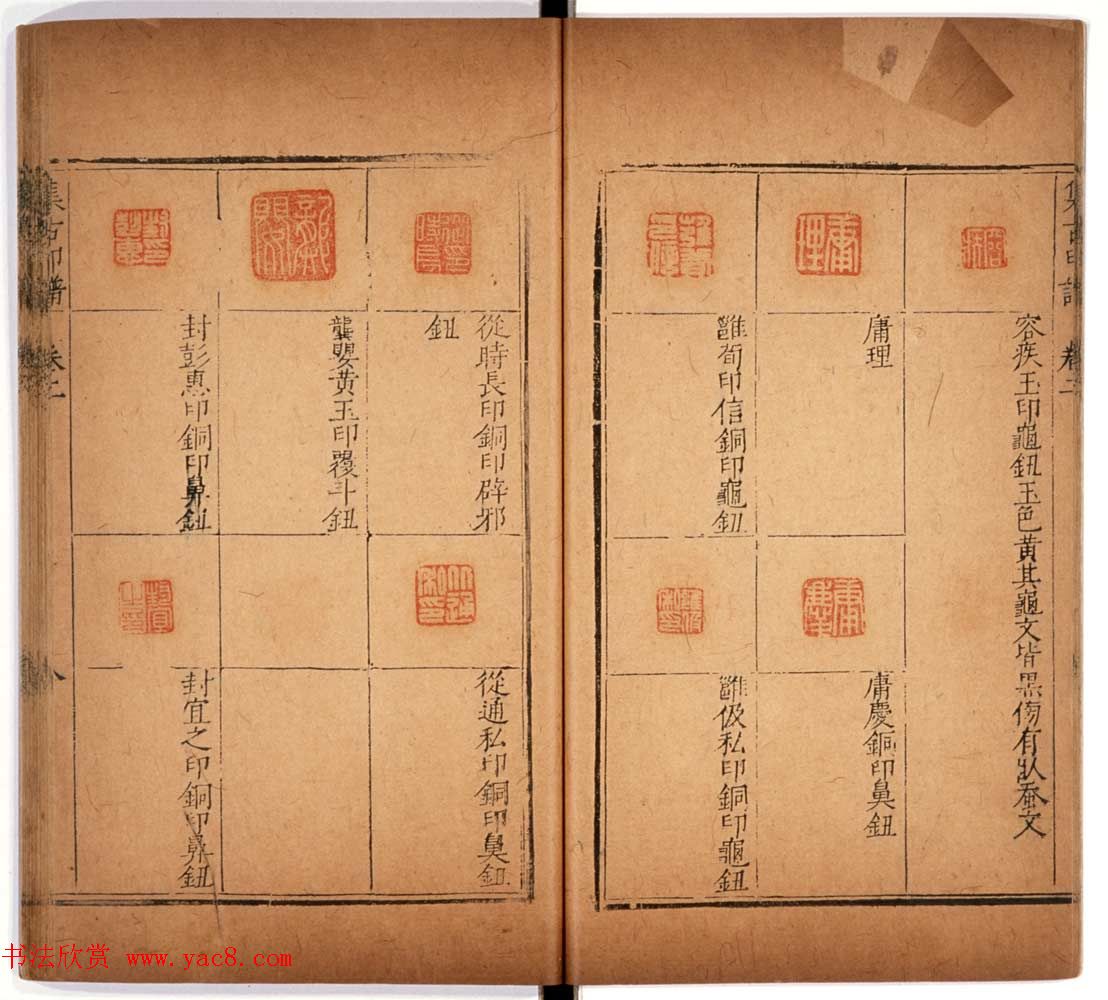 集古印譜 卷二
容疾玉印龜鈕玉色黃其龜文皆黑傷有狀蚕文
庸理
庸慶銅印鼻鈕
雝荀印信銅印龜鈕
雝伋私印銅印龜鈕
從時長印銅印辟邪
鈕
從通私印銅印鼻鈕
龔嬰黃玉印覆斗鈕
封彭惠印銅印鼻鈕
封宜之印銅印鼻鈕
集古印譜 卷二
八
书法欣赏 www.yac8.com